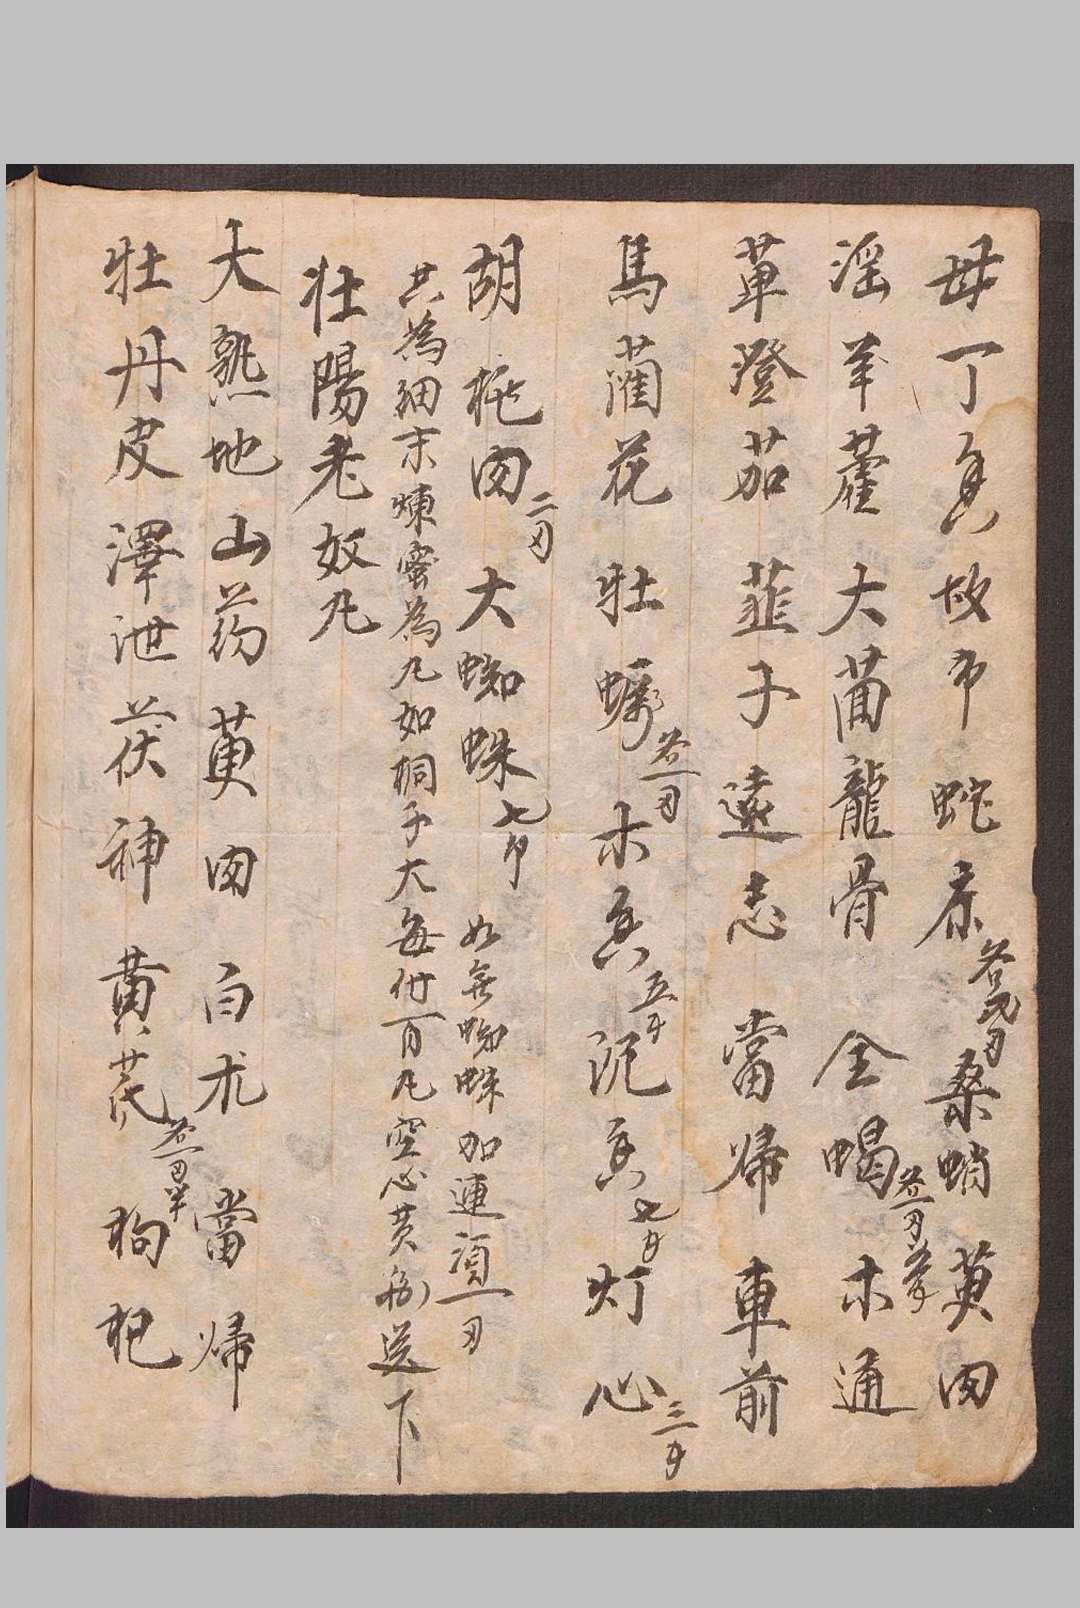 母丁香故帋蛇床各弍刄桑蛸萸肉
淫羊藿大茴龍骨全蝎各一刄木通
蓽澄茄韮子遠志當帰車前
馬藺花牡蠣各一刄木香五才沉香七才灯心三才
胡桃肉二刄大蜘蛛七个如無蜘蛛加連須一刄
共為細末煉蜜為凢如桐子大每付百凢空心黄酒送下
壮陽老奴凢
大熟地山药萸肉白朮當帰
牡丹皮澤泄茯神黄芪各一刄半枸杞